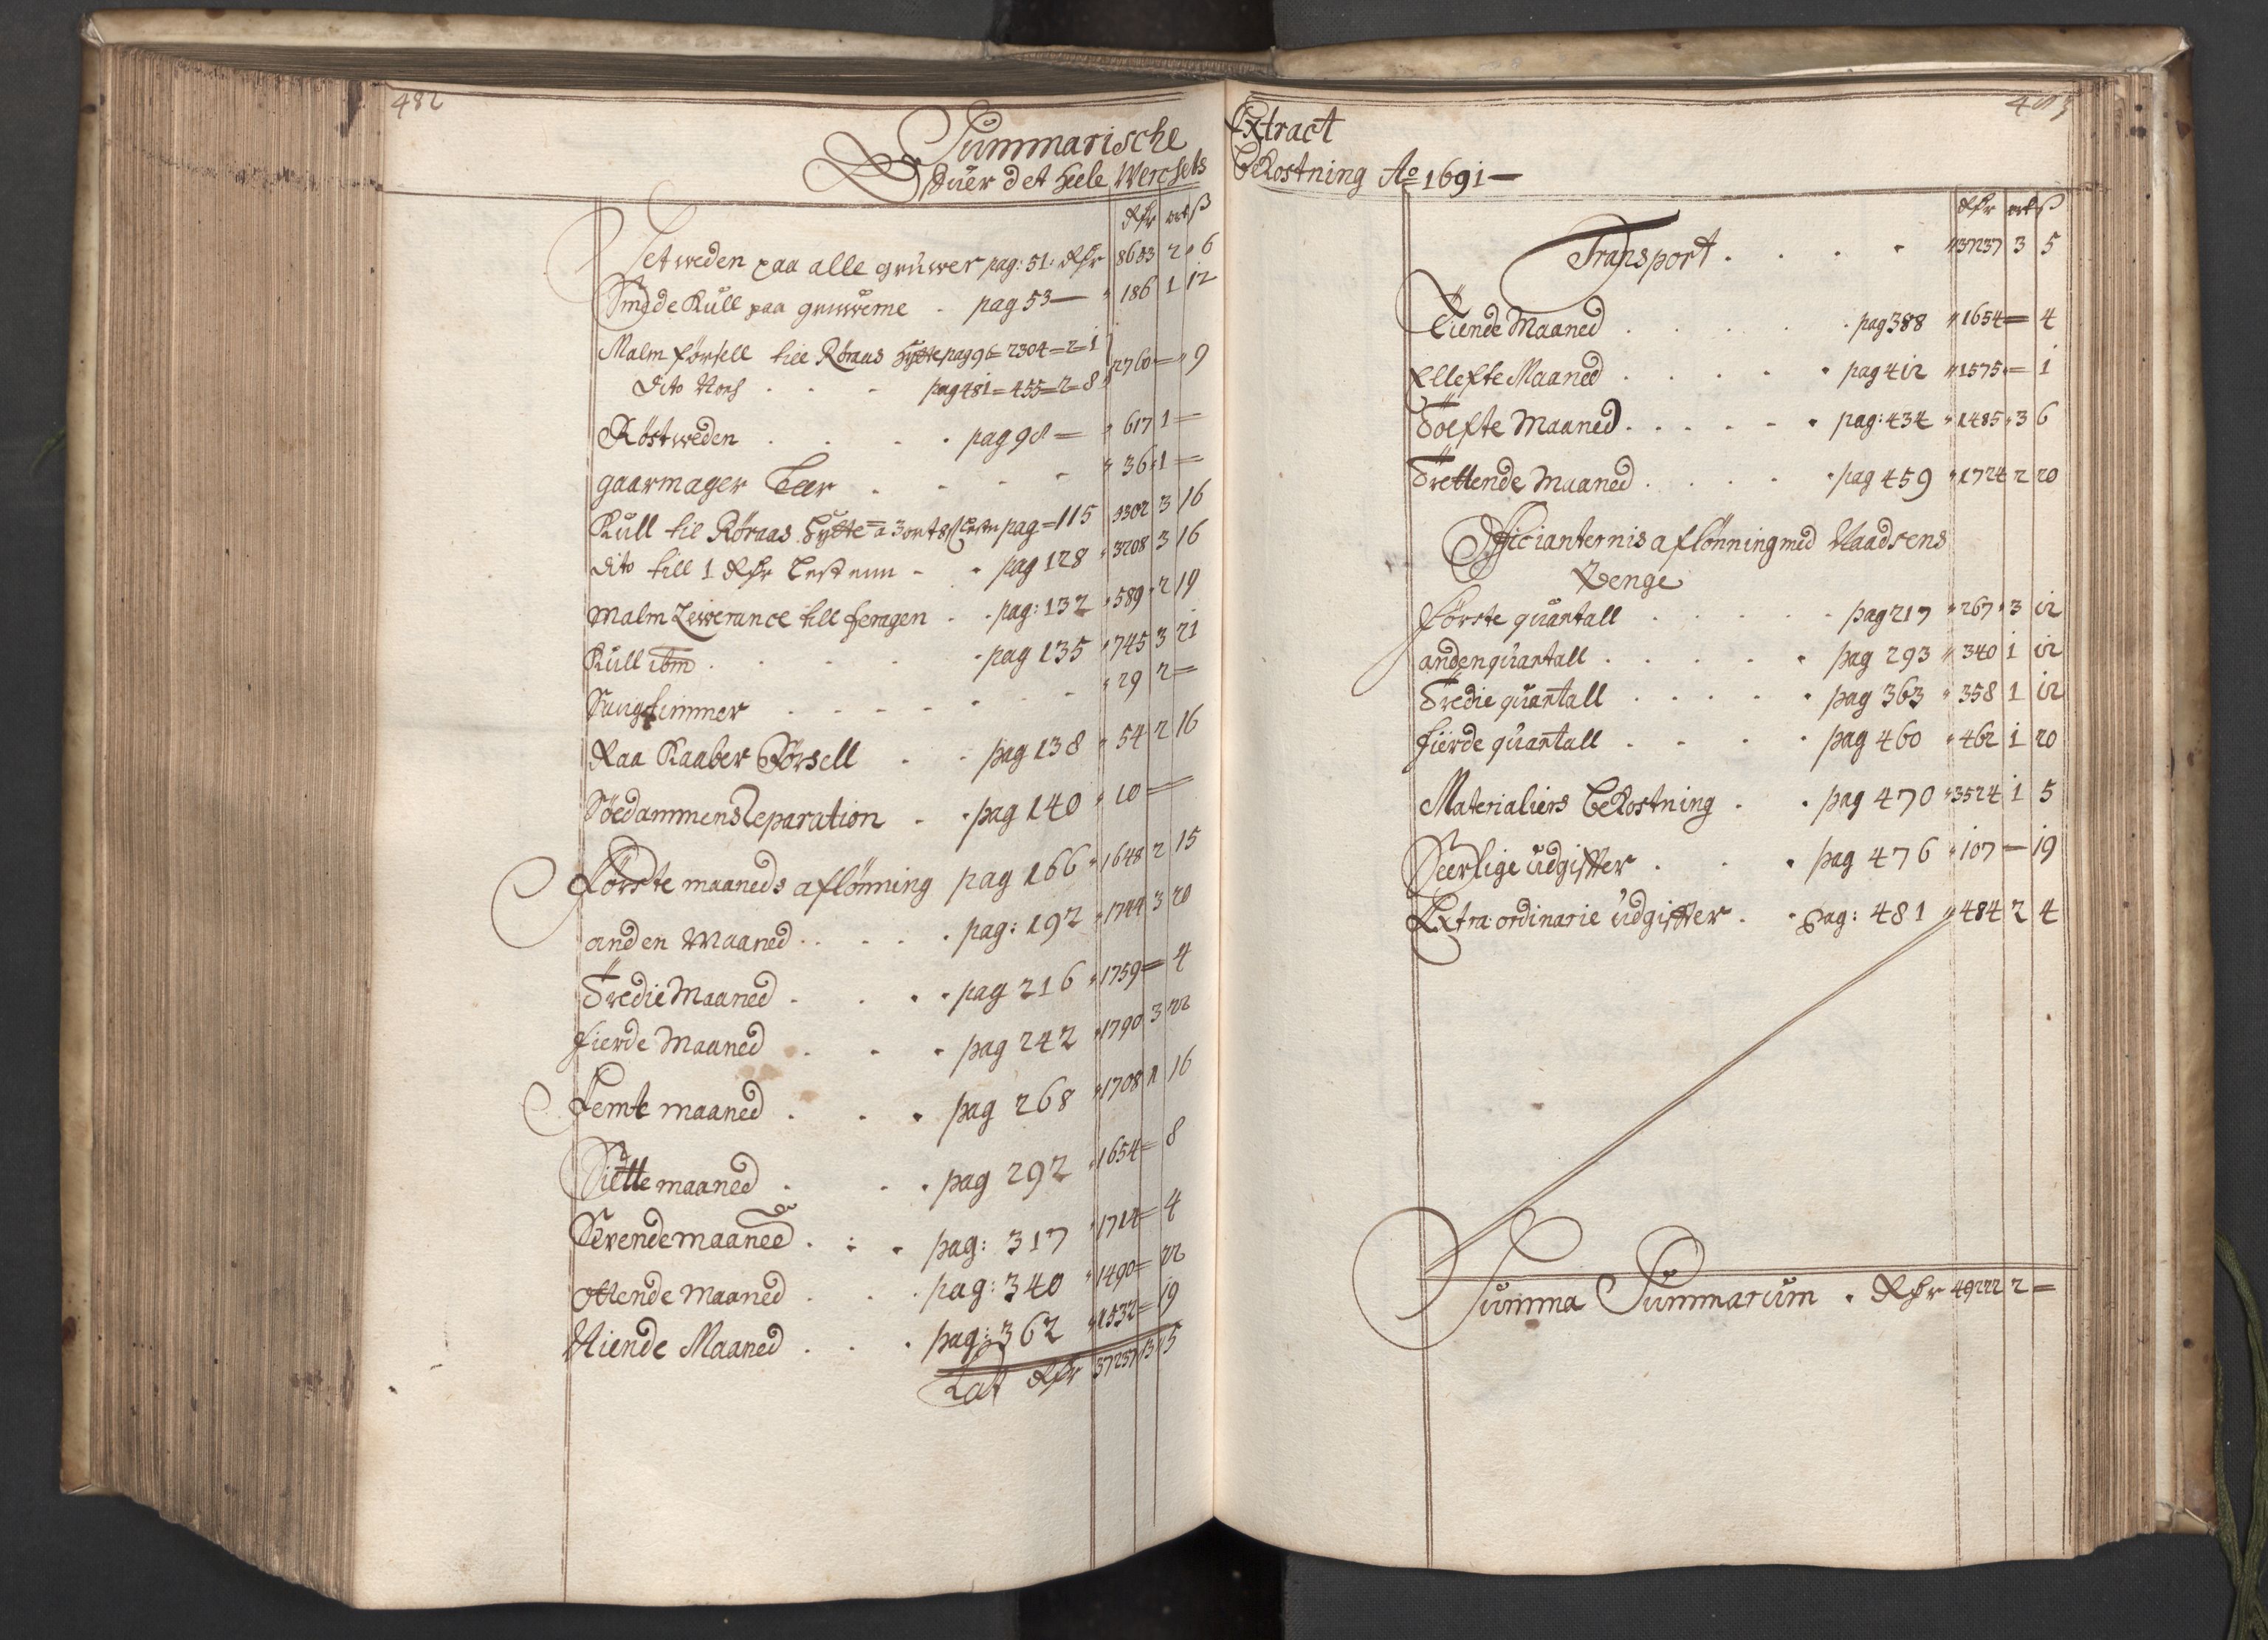 482
Summarische
Ofuer det heele Werchets
Rdr ort ß
Setweden paa alle gruwer pag: 51: Rdr 8653 2 6
Smede Kull paa gruwerne . pag 53 — 186 1 12
Malm førsell till Røraas Hytte pag 96 = 2304 = 2 = 1
Dito Noch . . . pag 481 = 455 = 2 = 8 2760 = 9
Röstweden . . . pag 98 = 617 1 =
gaarmager Leer . . . . 36 1 =
Kull til Røraas Hytte = a 3 ort 8 ß Lesten pag = 115 3302 3 16
dito till 1 Rdr Lesten . . pag 128 3208 3 16
Malm Lewerance till feragen . . pag: 132 589 2 19
Kull ibm . . . . pag 135 745 3 21
Saugtimmer . . . . . . 29 2 =
Raa Kaaber Førsell . . pag 138 54 2 16
Söedammens Reparation . . pag 140 10 =
Første maaneds aflönning pag 166 1648 2 15
anden Maaned . . . . pag: 192 1744 3 20
Tredie Maaned . . . . pag 216 1759 = 4
fierde Maaned . . . pag 242 1790 3 22
Femte maaned . . . pag 268 1708 1 16
Siette maaned . . . pag 292 1654 = 8
Sevende maaned . . . pag: 317 1714 = 4
ottende Maaned . . . pag: 340 1490 = 22
Niende Maaned . . . pag: 362 1532 = 19
Lat Rdr 37237 3 5
483
Extract
Bekostning Ao 1691 —
Rdr ort ß
Transport . . . . 37237 3 5
Tiende Maaned . . . . . pag 388 1654 = 4
Ellefte Maaned . . . . . pag 412 1575 = 1
Tölfte Maaned . . . . . pag: 434 1485 3 6
Trettende Maaned . . . . pag 459 1724 2 20
Officianternis aflönning med Naadsens
Penge
første quartall . . . . . pag 217 267 3 12
anden quartall . . . . . pag 293 340 1 12
Tredie quartall . . . . . pag 363 358 1 12
fierde quartall . . . . pag 460 462 1 20
Materialiers Bekostning . . pag 470 3524 1 5
Seerlige udgiffter . . . pag 476 107 — 19
Extra ordinarie udgiffter . . pag: 481 484 2 4
Summa Summarum . Rdr 49222 2 =